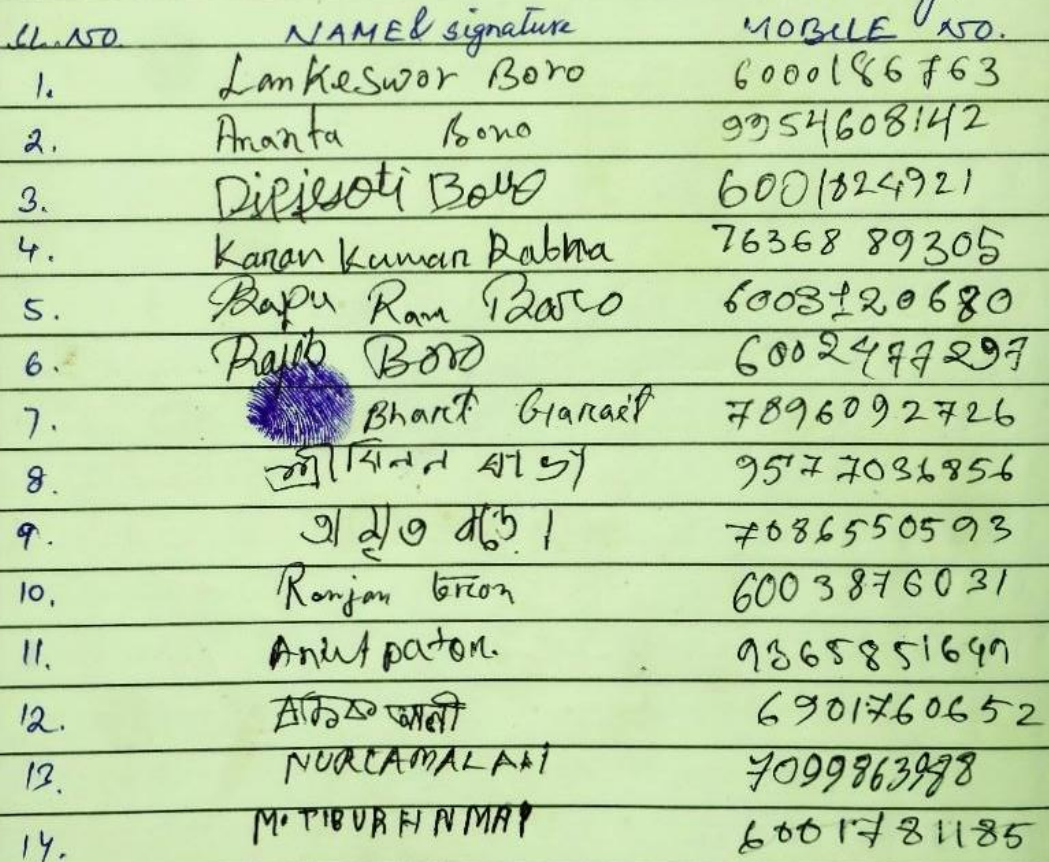 SL. NO. NAME & signature MOBILE NO.
1. Lankeswor Boro 6000186763
2. Ananta Boro 9954608142
3. Dipjyoti Boro 6001824921
4. Karan Kumar Rabha 76368 89305
5. Bapu Ram Boro 6003120680
6. Rajib Boro 6002477297
7. Bharat Garait 7896092726
8. শ্রী 9577036856
9. অমৃত বড়ো। 7086550593
10. Ranjan 6003876031
11. Anil pator. 9365851649
12. আলী 6901760652
13. NURJAMAL ALI 7099863988
14. 6001781185